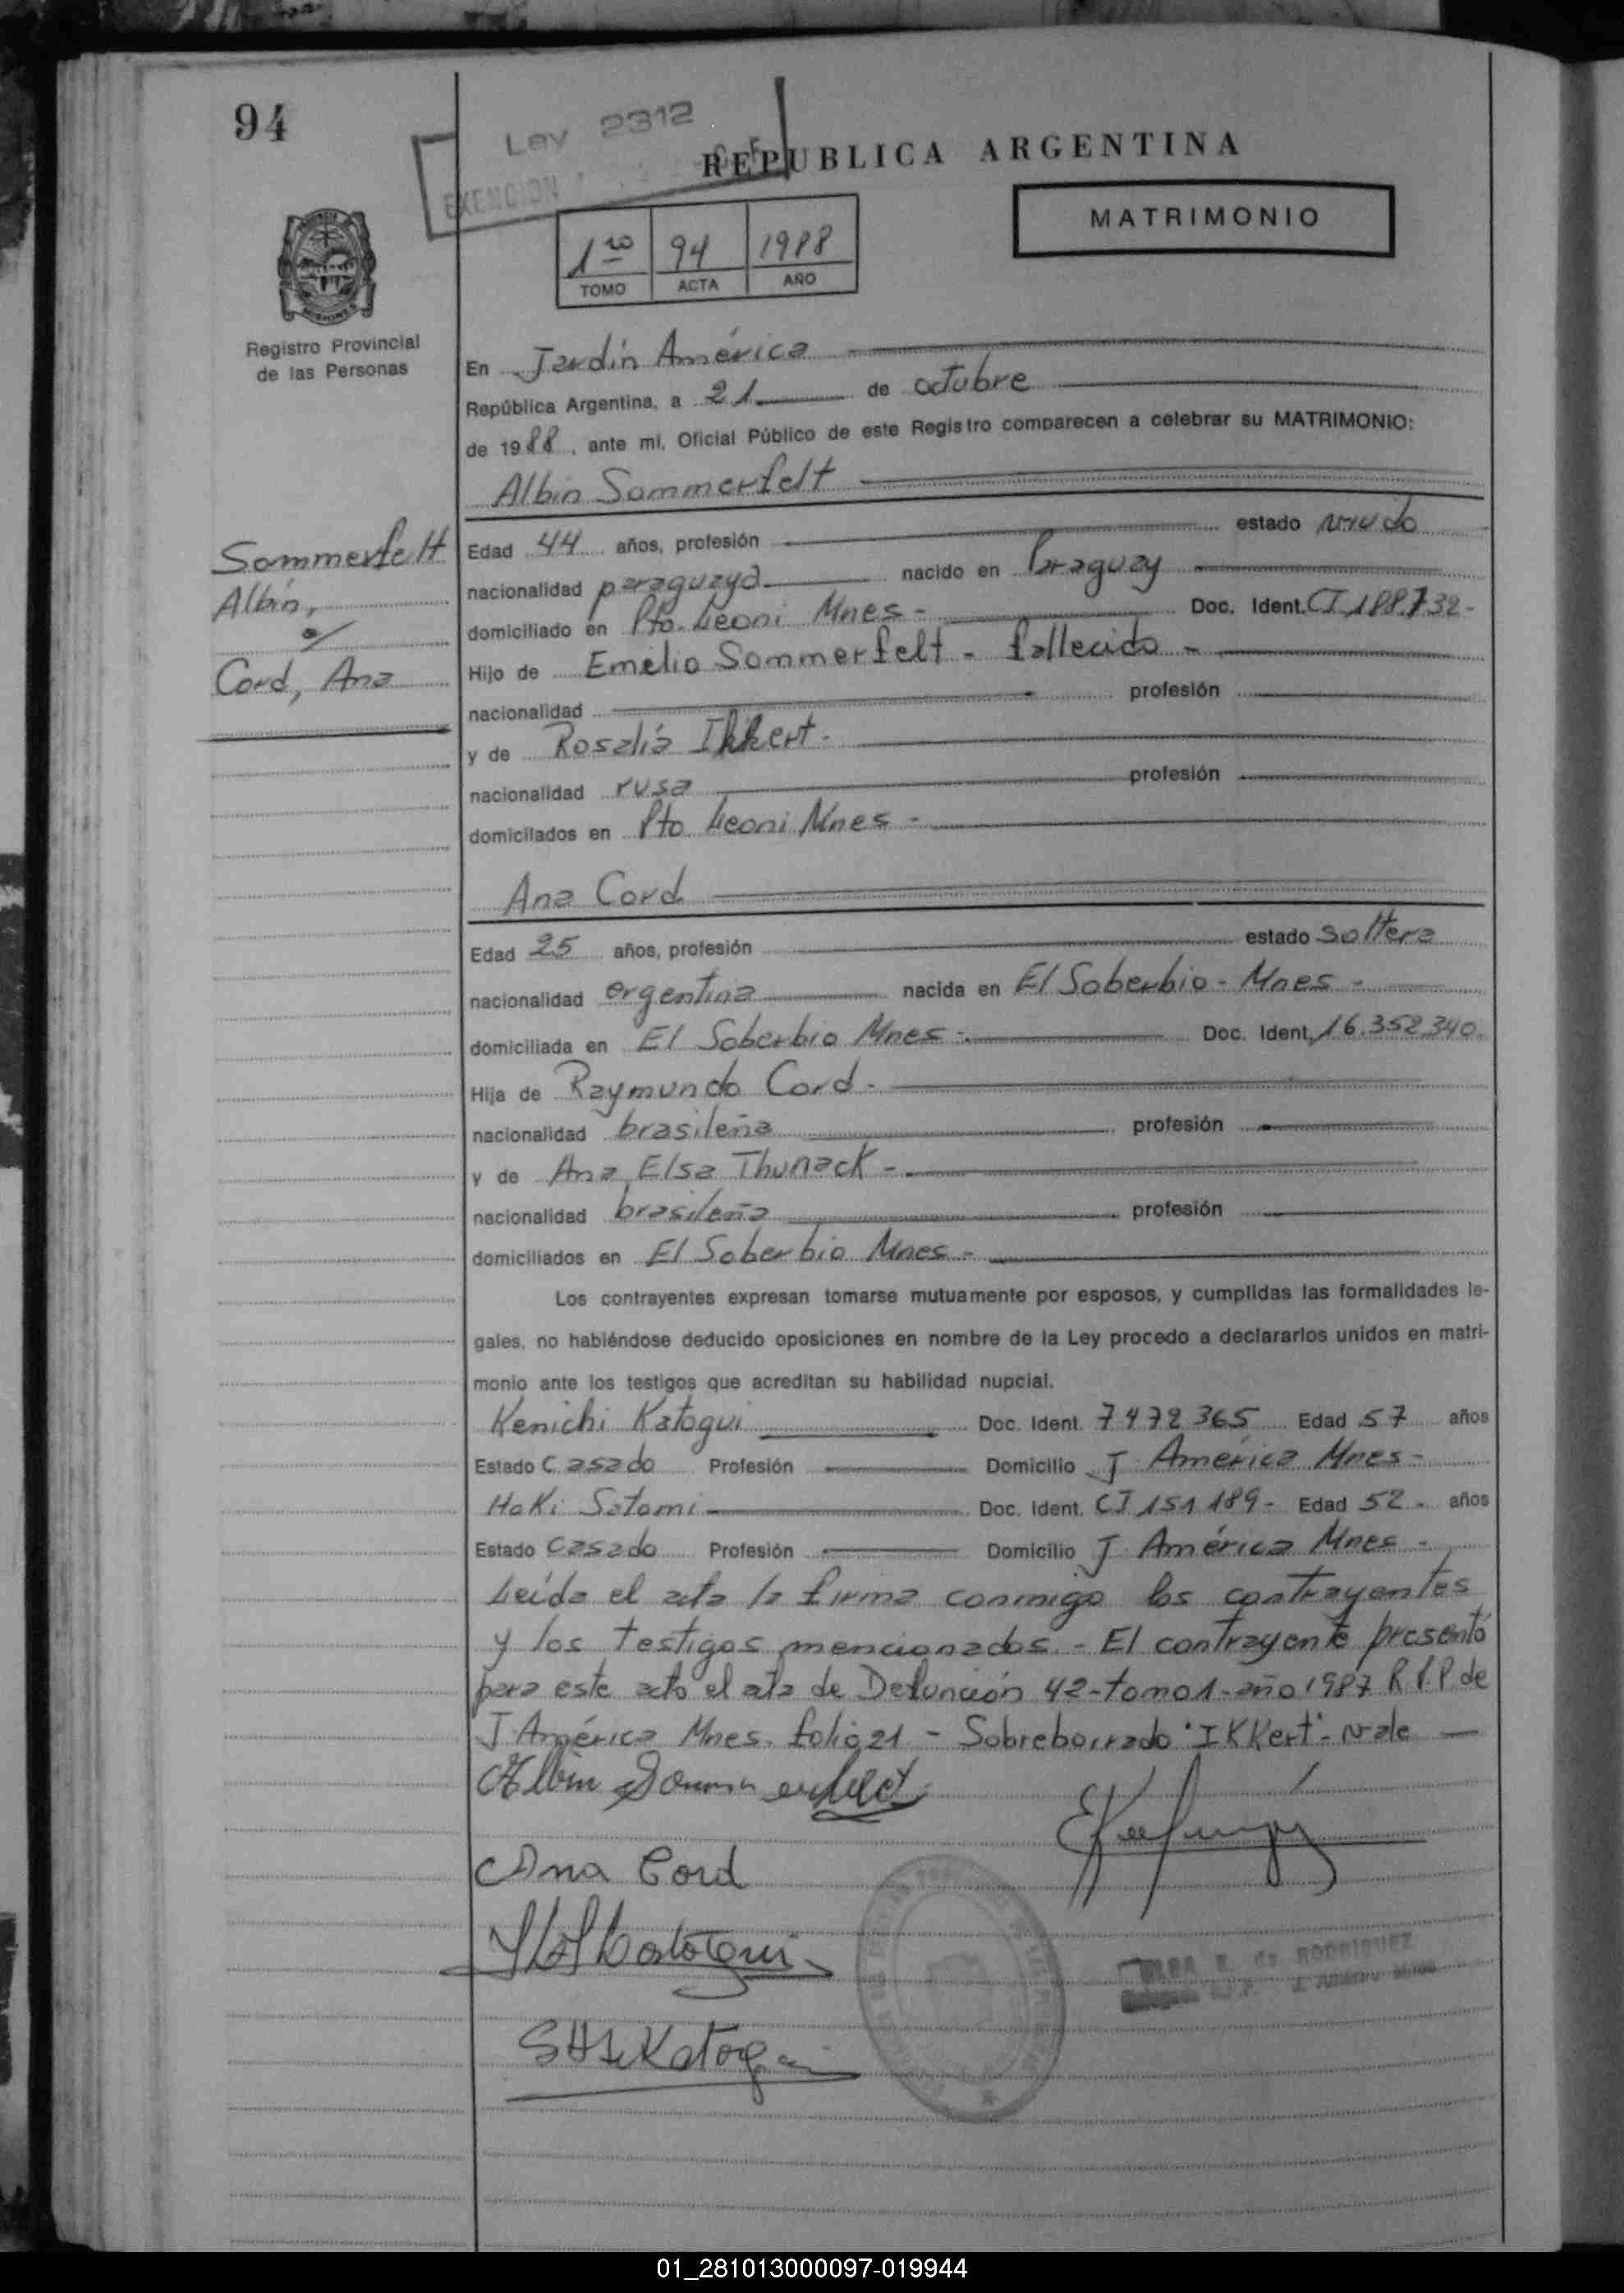 94
Ley 2312
EXENCION
REPUBLICA ARGENTINA
MATRIMONIO
1ro 94 1988
TOMO ACTA AÑO
MISIONES
Registro Provincial
de las Personas
En Jardín América
República Argentina, a 21 de octubre
de 1988, ante mi, Oficial Público de este Registro comparecen a celebrar su MATRIMONIO:
Albin Sommerfelt
Sommerfelt
Albin,
c/
Cord, Ana
Edad 44 años, profesión estado viudo
nacionalidad paraguaya nacido en Paraguay
domiciliado en Pto. Leoni Mnes - Doc. Ident. CI 188.732-
Hijo de Emelio Sommerfelt - fallecido -
nacionalidad profesión
y de Rosalía Ikkert.
nacionalidad rusa profesión
domicilados en Pto Leoni Mnes -
Ana Cord
Edad 25 años, profesión estado soltera
nacionalidad argentina nacida en El Soberbio - Mnes -
domiciliada en El Soberbio Mnes - Doc. Ident. 16.352.340
Hija de Raymundo Cord -
nacionalidad brasileña profesión
y de Ana Elsa Thunack -
nacionalidad brasileña profesión
domiciliados en El Soberbio Mnes -
Los contrayentes expresan tomarse mutuamente por esposos, y cumplidas las formalidades le-
gales, no habiéndose deducido oposiciones en nombre de la Ley procedo a declararlos unidos en matri-
monio ante los testigos que acreditan su habilidad nupcial.
Kenichi Katogui Doc. Ident. 7472365 Edad 57 años
Estado Casado Profesión Domicilio J América Mnes -
Haki Satomi Doc. Ident. CI 151.189- Edad 52 - años
Estado Casado Profesión Domicilio J América Mnes -
Leída el acta la firma conmigo los contrayentes
y los testigos mencionados. - El contrayente presentó
para este acto el acta de Defunción 42-tomo1-año 1987 R.P.P de
J América Mnes. folio 21 - Sobreborrado "IKKert"- vale
Albin Sommerfelt
Ana Cord
Katogui
Katogui
E. de RODRIGUEZ
01_281013000097-019944